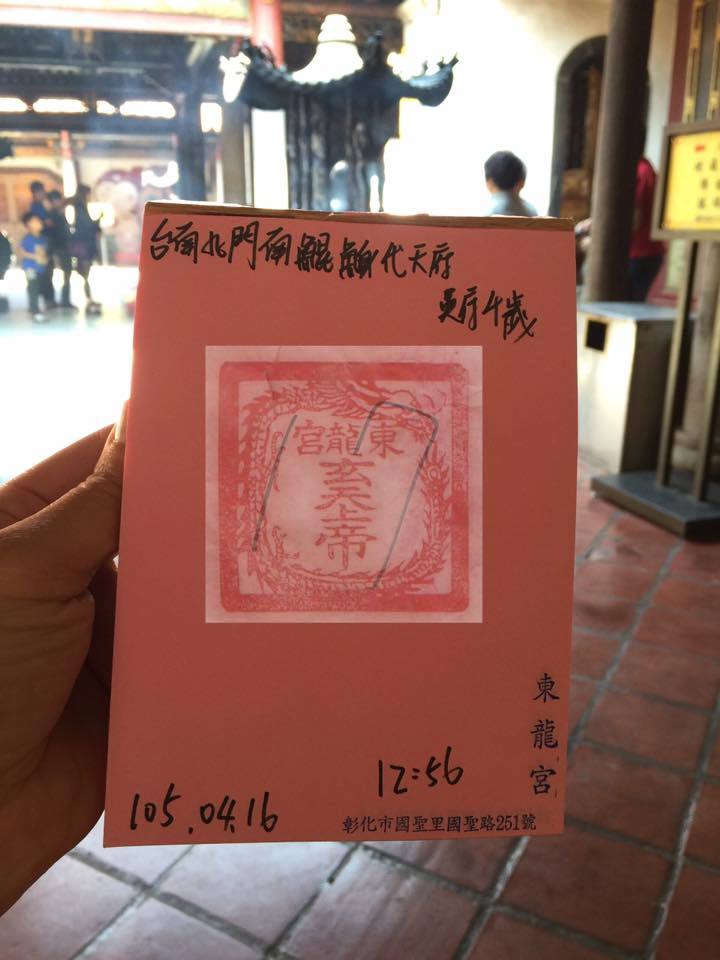 台南北門南鯤鯓代天府
吳府千歲
東龍宮
玄天上帝
東龍宮
105.04.16
12:56
彰化市國聖里國聖路251號